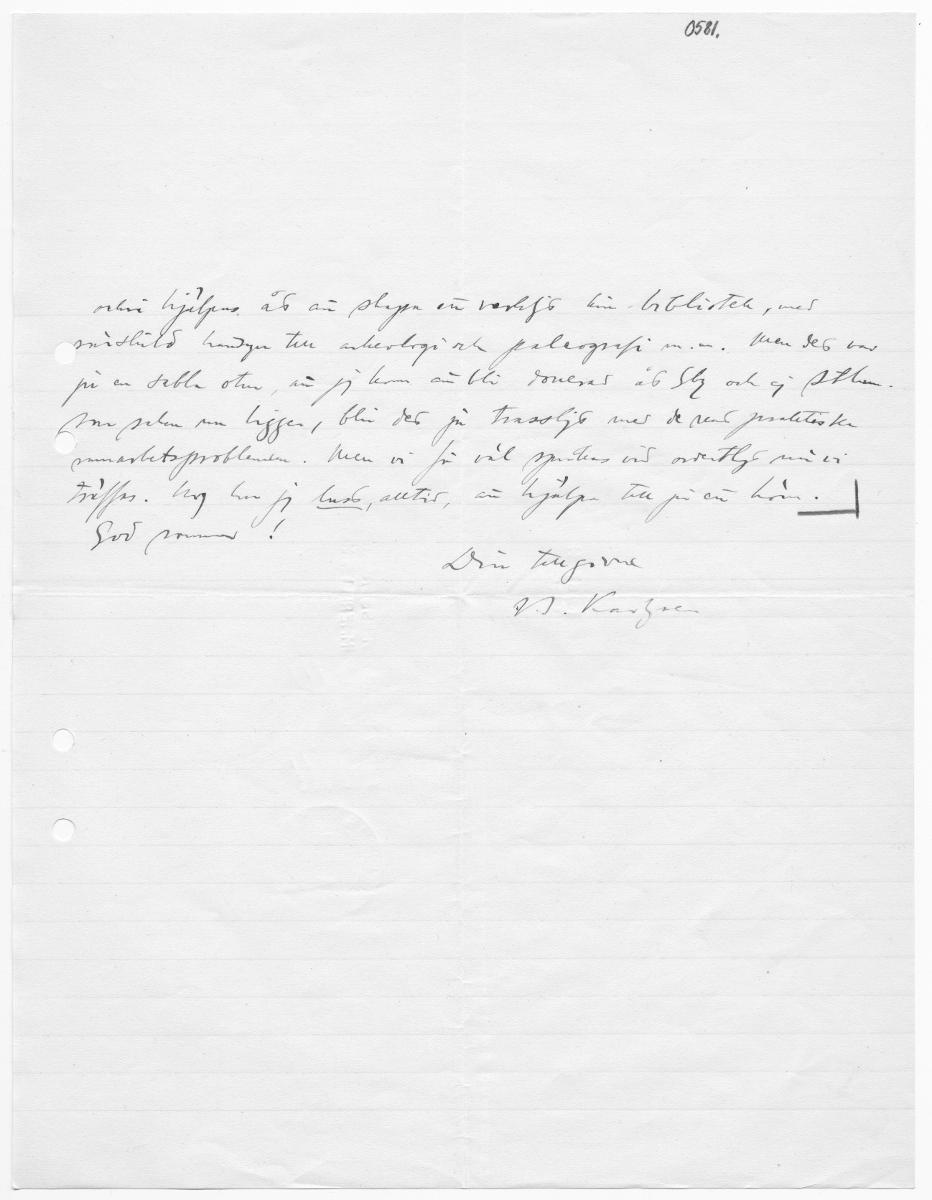 0581.
och vi hjälpas åt att skapa ett verkligt bibliotek, med
särskild hänsyn till arkeologi och paleografi m.m. Men det var
ju en sabla otur, att jg kom att bli donerad åt Gbg och ej Sthlm.
Som saken nu ligger, blir det ju trassligt med de rent praktiska
samarbetsproblemen. Men vi få väl språkas vid ordentligt när vi
träffas. Nog har jg lust, alltid, att hjälpa till på ett hörn.
God sommar!
Din tillgivne
B. Karlgren